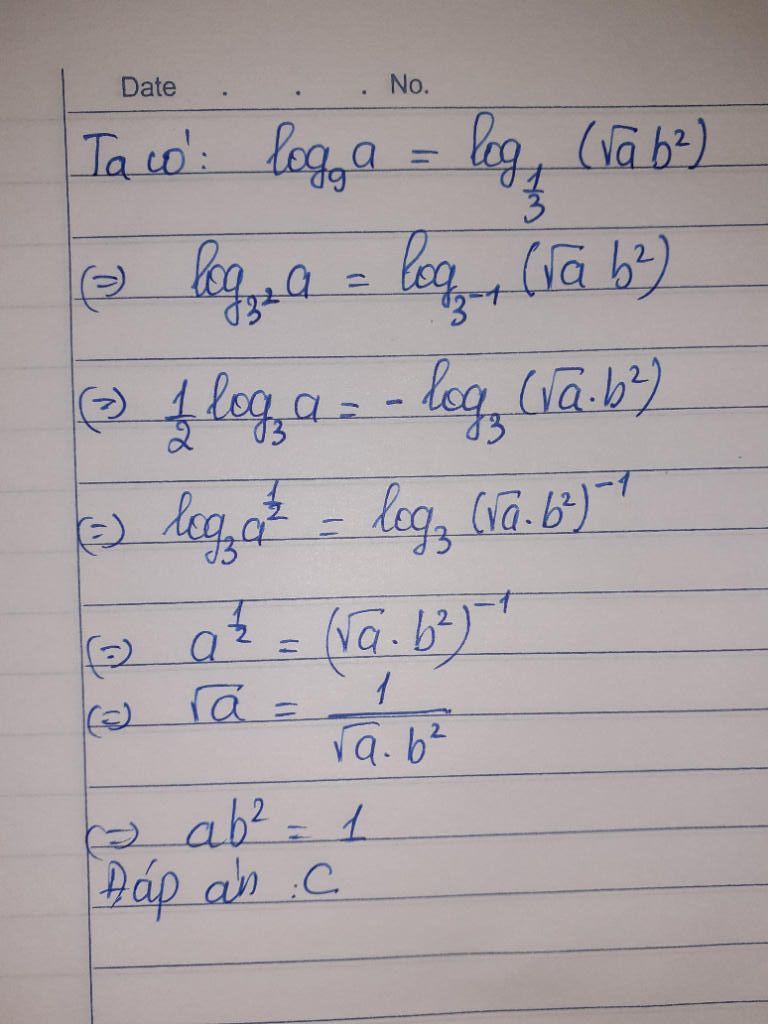 Date . . . No.
Ta có: log₉a = log_{1/3} (√a b²)
(=) log_{3²} a = log_{3⁻¹} (√a b²)
(=) 1/2 log₃a = - log₃ (√a.b²)
(=) log₃a^{1/2} = log₃ (√a.b²)⁻¹
(=) a^{1/2} = (√a.b²)⁻¹
(=) √a = 1/(√a.b²)
(=) ab² = 1
Đáp án : C